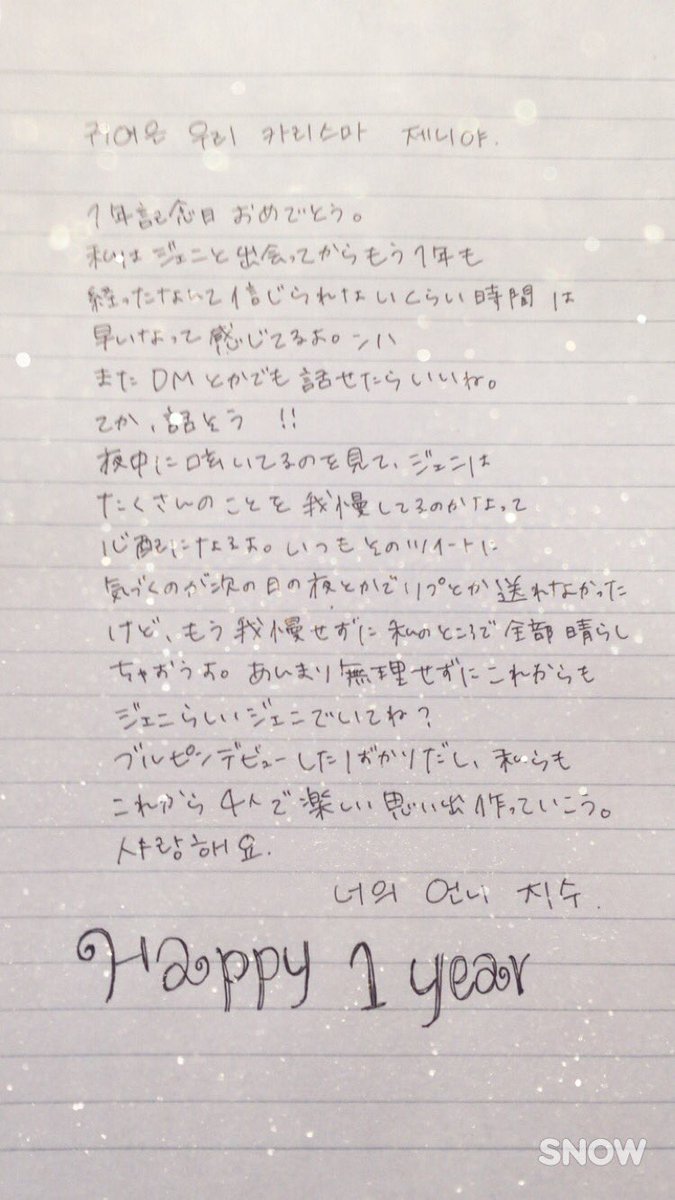 귀여운 우리 카리스마 제니야.
1年記念日おめでとう。
私はジェニと出会ってからもう1年も
経ったなんて信じられないくらい時間は
早いなって感じてるよ。ㅋㅋ
またDMとかでも話せたらいいね。
てか、話そう!!
夜中に呟いてるのを見て、ジェニは
たくさんのことを我慢してるのかなって
心配になるよ。いつもそのツイートに
気づくのが次の日の夜とかでリプとか送れなかった
けど、もう我慢せずに私のところで全部晴らし
ちゃおうよ。あんまり無理せずにこれからも
ジェニらしいジェニでいてね?
ブルピンデビューしたばかりだし、私らも
これから4人で楽しい思い出作っていこう。
사랑해요.
너의 언니 지수.
Happy 1 year
SNOW